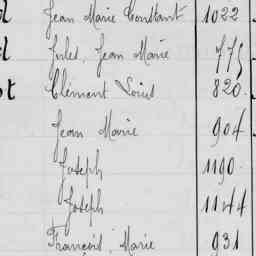 Jean Marie Constant 1022
Jules, Jean Marie 775
Clément Louis 820
Jean Marie 904
Joseph 1190
Joseph 1144
François, Marie 931